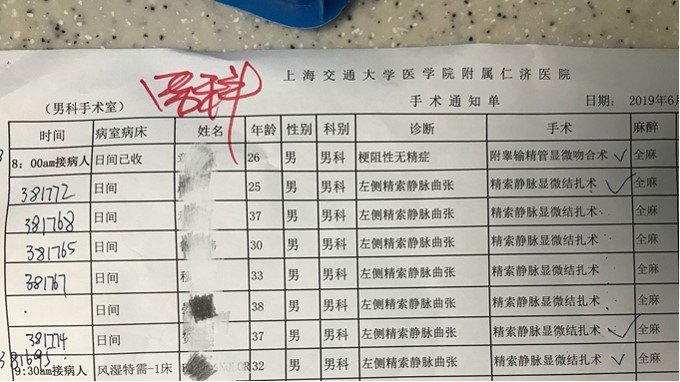 上海交通大学医学院附属仁济医院
（男科手术室） 男科 手术通知单 日期： 2019年6
时间 病室病床 姓名 年龄 性别 科别 诊断 手术 麻醉
8：00am接病人 日间已收 26 男 男科 梗阻性无精症 附睾输精管显微吻合术 全麻
381772 日间 25 男 男科 左侧精索静脉曲张 精索静脉显微结扎术 全麻
381768 日间 37 男 男科 左侧精索静脉曲张 精索静脉显微结扎术 全麻
381765 日间 30 男 男科 左侧精索静脉曲张 精索静脉显微结扎术 全麻
381767 日间 33 男 男科 左侧精索静脉曲张 精索静脉显微结扎术 全麻
日间 38 男 男科 左侧精索静脉曲张 精索静脉显微结扎术 全麻
381774 日间 37 男 男科 左侧精索静脉曲张 精索静脉显微结扎术 全麻
381695
9:30am接病人 风湿特需-1床 32 男 男科 左侧精索静脉曲张 精索静脉显微结扎术 全麻